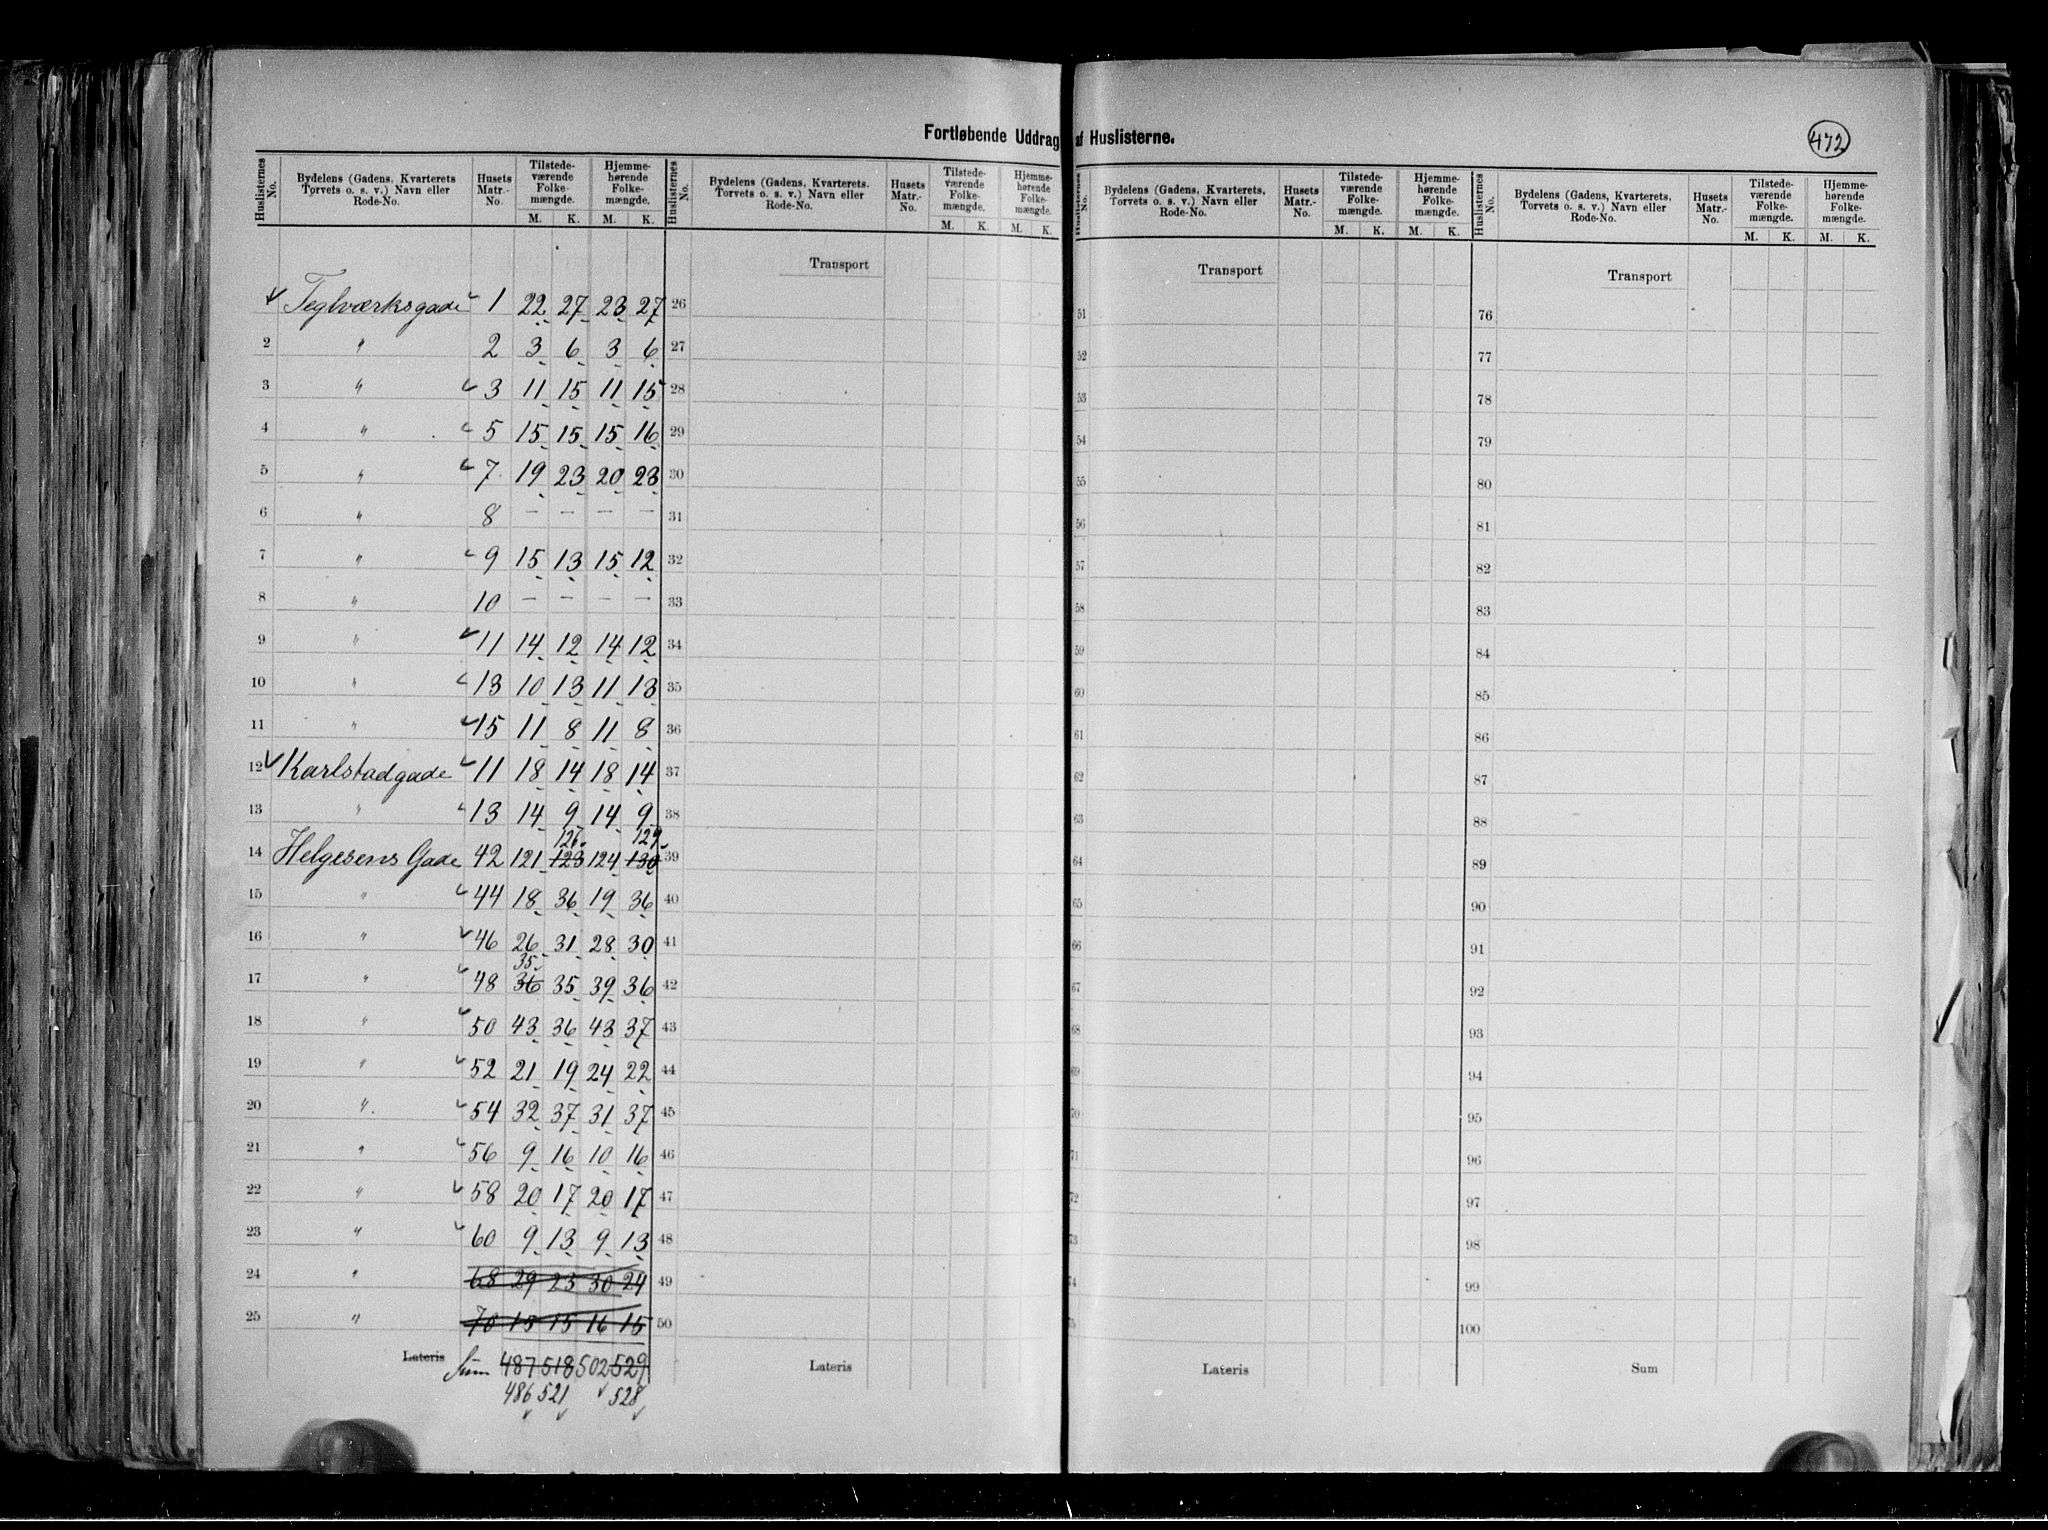 Fortløbende Uddrag af Huslisterne.
472
Huslisternes No. | Bydelens (Gadens, Kvarterets Torvets o. s. v.) Navn eller Rode-No. | Husets Matr.-No. | Tilstede-værende Folke-mængde. M. K. | Hjemme-hørende Folke-mængde. M. K.
Teglværksgade 1 22 27 23 27
2 " 2 3 6 3 6
3 " 3 11 15 11 15
4 " 5 15 15 15 16
5 " 7 19 23 20 23
6 " 8 — — — —
7 " 9 15 13 15 12
8 " 10 — — — —
9 " 11 14 12 14 12
10 " 13 10 13 11 13
11 " 15 11 8 11 8
12 Karlstadgade 11 18 14 18 14
13 " 13 14 9 14 9
126 129
14 Helgesens Gade 42 121 123 124 130
15 " 44 18 36 19 36
16 " 46 26 31 28 30
35
17 " 48 36 35 39 36
18 " 50 43 36 43 37
19 " 52 21 19 24 22
20 " 54 32 37 31 37
21 " 56 9 16 10 16
22 " 58 20 17 20 17
23 " 60 9 13 9 13
24 " 68 29 23 30 24
25 " 70 15 15 16 15
Lateris Sum 487 518 502 529
486 521 528
Huslisternes No. | Bydelens (Gadens, Kvarterets, Torvets o. s. v.) Navn eller Rode-No. | Husets Matr.-No. | Tilstede-værende Folke-mængde. M. K. | Hjemme-hørende Folke-mængde. M. K.
Transport
26
27
28
29
30
31
32
33
34
35
36
37
38
39
40
41
42
43
44
45
46
47
48
49
50
Lateris
Huslisternes No. | Bydelens (Gadens, Kvarterets, Torvets o. s. v.) Navn eller Rode-No. | Husets Matr.-No. | Tilstede-værende Folke-mængde. M. K. | Hjemme-hørende Folke-mængde. M. K.
Transport
51
52
53
54
55
56
57
58
59
60
61
62
63
64
65
66
67
68
69
70
71
72
73
74
75
Lateris
Huslisternes No. | Bydelens (Gadens, Kvarterets, Torvets o. s. v.) Navn eller Rode-No. | Husets Matr.-No. | Tilstede-værende Folke-mængde. M. K. | Hjemme-hørende Folke-mængde. M. K.
Transport
76
77
78
79
80
81
82
83
84
85
86
87
88
89
90
91
92
93
94
95
96
97
98
99
100
Sum